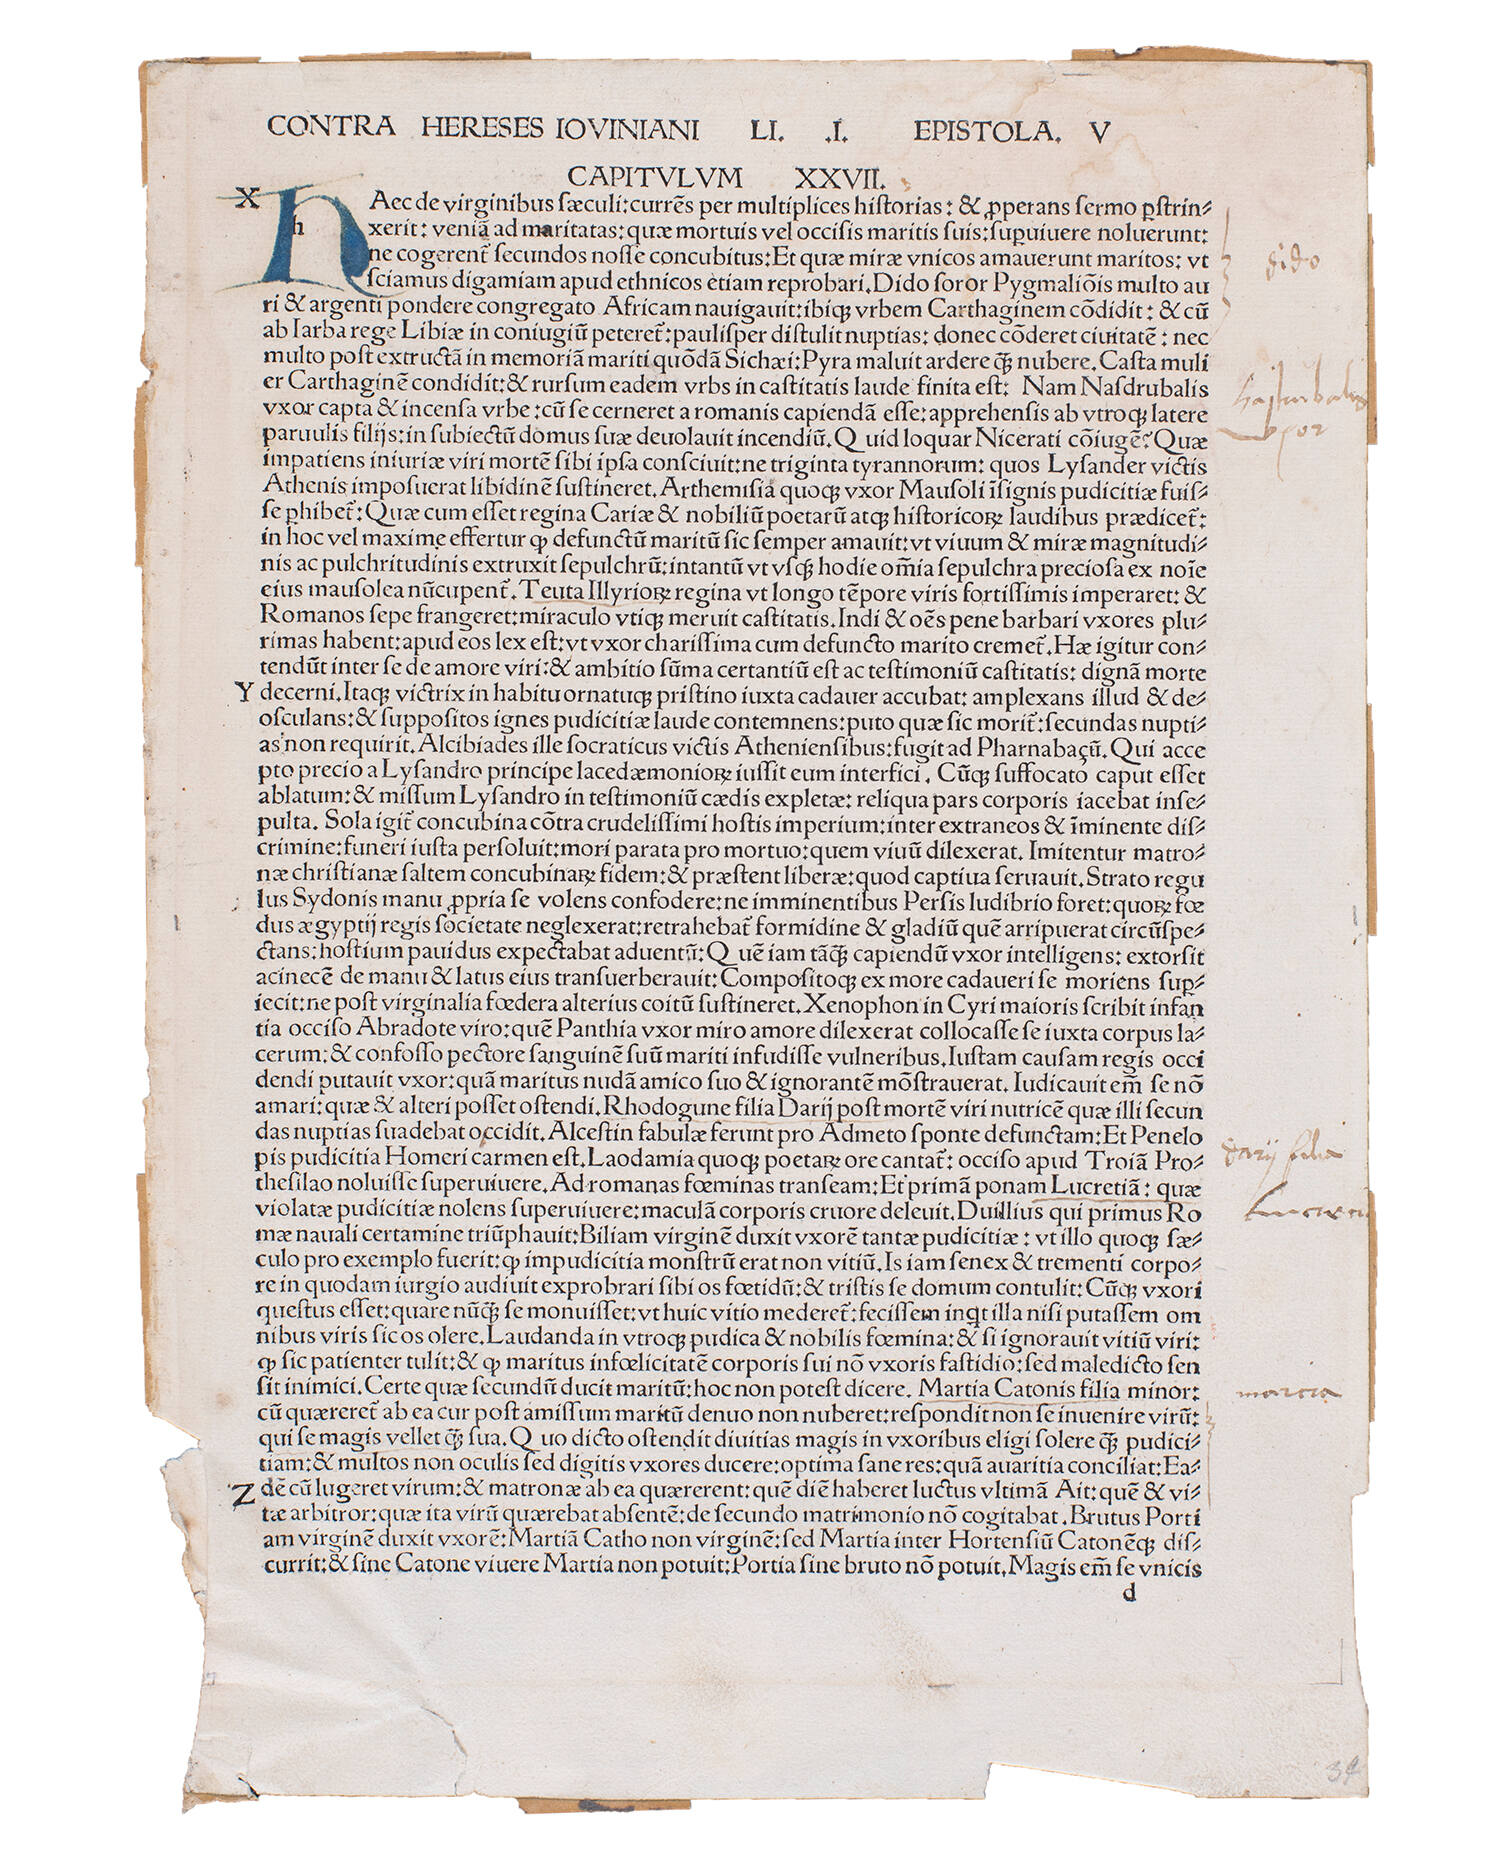 CONTRA HERESES IOVINIANI LI. .I. EPISTOLA. V
CAPITVLVM XXVII.
X
h
HAec de virginibus sæculi: currẽs per multiplices historias: & ꝓperans sermo ꝑstrin⸗
xerit: veniã ad maritatas: quæ mortuis vel occisis maritis suis: suꝑuiuere noluerunt:
ne cogerent᷑ secundos nosse concubitus: Et quæ miræ vnicos amauerunt maritos: vt
sciamus digamiam apud ethnicos etiam reprobari. Dido soror Pygmaliõis multo au
ri & argenti pondere congregato Africam nauigauit: ibiqꝫ vrbem Carthaginem cõdidit: & cũ
ab Iarba rege Libiæ in coniugiũ peteret᷑: paulisper distulit nuptias: donec cõderet ciuitatẽ: nec
multo post extructã in memoriã mariti quõdã Sichæi: Pyra maluit ardere q̃ꝫ nubere. Casta muli
er Carthaginẽ condidit: & rursum eadem vrbs in castitatis laude finita est: Nam Nasdrubalis
vxor capta & incensa vrbe: cũ se cerneret a romanis capiendã esse: apprehensis ab vtroqꝫ latere
paruulis filijs: in subiectũ domus suæ deuolauit incendiũ. Quid loquar Nicerati cõiugẽ? Quæ
impatiens iniuriæ viri mortẽ sibi ipsa consciuit: ne triginta tyrannorum: quos Lysander victis
Athenis imposuerat libidinẽ sustineret. Arthemisia quoqꝫ vxor Mausoli ĩsignis pudicitiæ fuis⸗
se ꝑhibet᷑: Quæ cum esset regina Cariæ & nobiliũ poetarũ atqꝫ historicoꝝ laudibus prædicet᷑:
in hoc vel maxime effertur ꝙ defunctũ maritũ sic semper amauit: vt viuum & miræ magnitudi⸗
nis ac pulchritudinis extruxit sepulchrũ: intantũ vt vsqꝫ hodie om̃ia sepulchra preciosa ex noĩe
eius mausolea nũcupent᷑. Teuta Illyrioꝝ regina vt longo tẽpore viris fortissimis imperaret: &
Romanos sepe frangeret: miraculo vtiqꝫ meruit castitatis. Indi & oẽs pene barbari vxores plu⸗
rimas habent: apud eos lex est: vt vxor charissima cum defuncto marito cremet᷑. Hæ igitur con⸗
tendũt inter se de amore viri: & ambitio sũma certantiũ est ac testimoniũ castitatis: dignã morte
Y decerni. Itaqꝫ victrix in habitu ornatuqꝫ pristino iuxta cadauer accubat: amplexans illud & de⸗
osculans: & suppositos ignes pudicitiæ laude contemnens: puto quæ sic morit᷑: secundas nupti⸗
as non requirit. Alcibiades ille socraticus victis Atheniensibus: fugit ad Pharnabaçũ. Qui acce
pto precio a Lysandro principe lacedæmonioꝝ iussit eum interfici. Cũqꝫ suffocato caput esset
ablatum: & missum Lysandro in testimoniũ cædis expletæ: reliqua pars corporis iacebat inse⸗
pulta. Sola igit᷑ concubina cõtra crudelissimi hostis imperium: inter extraneos & ĩminente dis⸗
crimine: funeri iusta persoluit: mori parata pro mortuo: quem viuũ dilexerat. Imitentur matro⸗
næ christianæ saltem concubinaꝝ fidem: & præstent liberæ: quod captiua seruauit. Strato regu
lus Sydonis manu ꝓpria se volens confodere: ne imminentibus Persis ludibrio foret: quoꝝ fœ
dus ægyptij regis societate neglexerat: retrahebat᷑ formidine & gladiũ quẽ arripuerat circũspe⸗
ctans: hostium pauidus expectabat aduentũ: Quẽ iam tãq̃ꝫ capiendũ vxor intelligens: extorsit
acinecẽ de manu & latus eius transuerberauit: Compositoqꝫ ex more cadaueri se moriens suꝑ⸗
iecit: ne post virginalia fœdera alterius coitũ sustineret. Xenophon in Cyri maioris scribit infan
tia occiso Abradote viro: quẽ Panthia vxor miro amore dilexerat collocasse se iuxta corpus la⸗
cerum: & confosso pectore sanguinẽ suũ mariti infudisse vulneribus. Iustam causam regis occi
dendi putauit vxor: quã maritus nudã amico suo & ignorantẽ mõstrauerat. Iudicauit em̃ se nõ
amari: quæ & alteri posset ostendi. Rhodogune filia Darij post mortẽ viri nutricẽ quæ illi secun
das nuptias suadebat occidit. Alcestin fabulæ ferunt pro Admeto sponte defunctam: Et Penelo
pis pudicitia Homeri carmen est. Laodamia quoqꝫ poetaꝝ ore cantat᷑: occiso apud Troiã Pro⸗
thesilao noluisse superuiuere. Ad romanas fœminas transeam: Et primã ponam Lucretiã: quæ
violatæ pudicitiæ nolens superuiuere: maculã corporis cruore deleuit. Duillius qui primus Ro
mæ nauali certamine triũphauit: Biliam virginẽ duxit vxorẽ tantæ pudicitiæ: vt illo quoqꝫ sæ⸗
culo pro exemplo fuerit: ꝙ impudicitia monstrũ erat non vitiũ. Is iam senex & trementi corpo⸗
re in quodam iurgio audiuit exprobrari sibi os fœtidũ: & tristis se domum contulit: Cũqꝫ vxori
questus esset: quare nũq̃ꝫ se monuisset: vt huic vitio mederet᷑: fecissem inqͥt illa nisi putassem om
nibus viris sic os olere. Laudanda in vtroqꝫ pudica & nobilis fœmina: & si ignorauit vitiũ viri:
ꝙ sic patienter tulit: & ꝙ maritus infœlicitatẽ corporis sui nõ vxoris fastidio: sed maledicto sen
sit inimici. Certe quæ secundũ ducit maritũ: hoc non potest dicere. Martia Catonis filia minor:
cũ quæreret᷑ ab ea cur post amissum maritũ denuo non nuberet: respondit non se inuenire virũ:
qui se magis vellet q̃ꝫ sua. Quo dicto ostendit diuitias magis in vxoribus eligi solere q̃ꝫ pudici⸗
tiam: & multos non oculis sed digitis vxores ducere: optima sane res: quã auaritia conciliat: Ea⸗
Z dẽ cũ lugeret virum: & matronæ ab ea quærerent: quẽ diẽ haberet luctus vltimã Ait: quẽ & vi⸗
tæ arbitror: quæ ita virũ quærebat absentẽ: de secundo matrimonio nõ cogitabat. Brutus Porti
am virginẽ duxit vxorẽ: Martiã Catho non virginẽ: sed Martia inter Hortensiũ Catonẽqꝫ dis⸗
currit: & sine Catone viuere Martia non potuit: Portia sine bruto nõ potuit. Magis em̃ se vnicis
d
dido
hasdrubalis
vxor
darij filia
Lucrecia
marcia
39